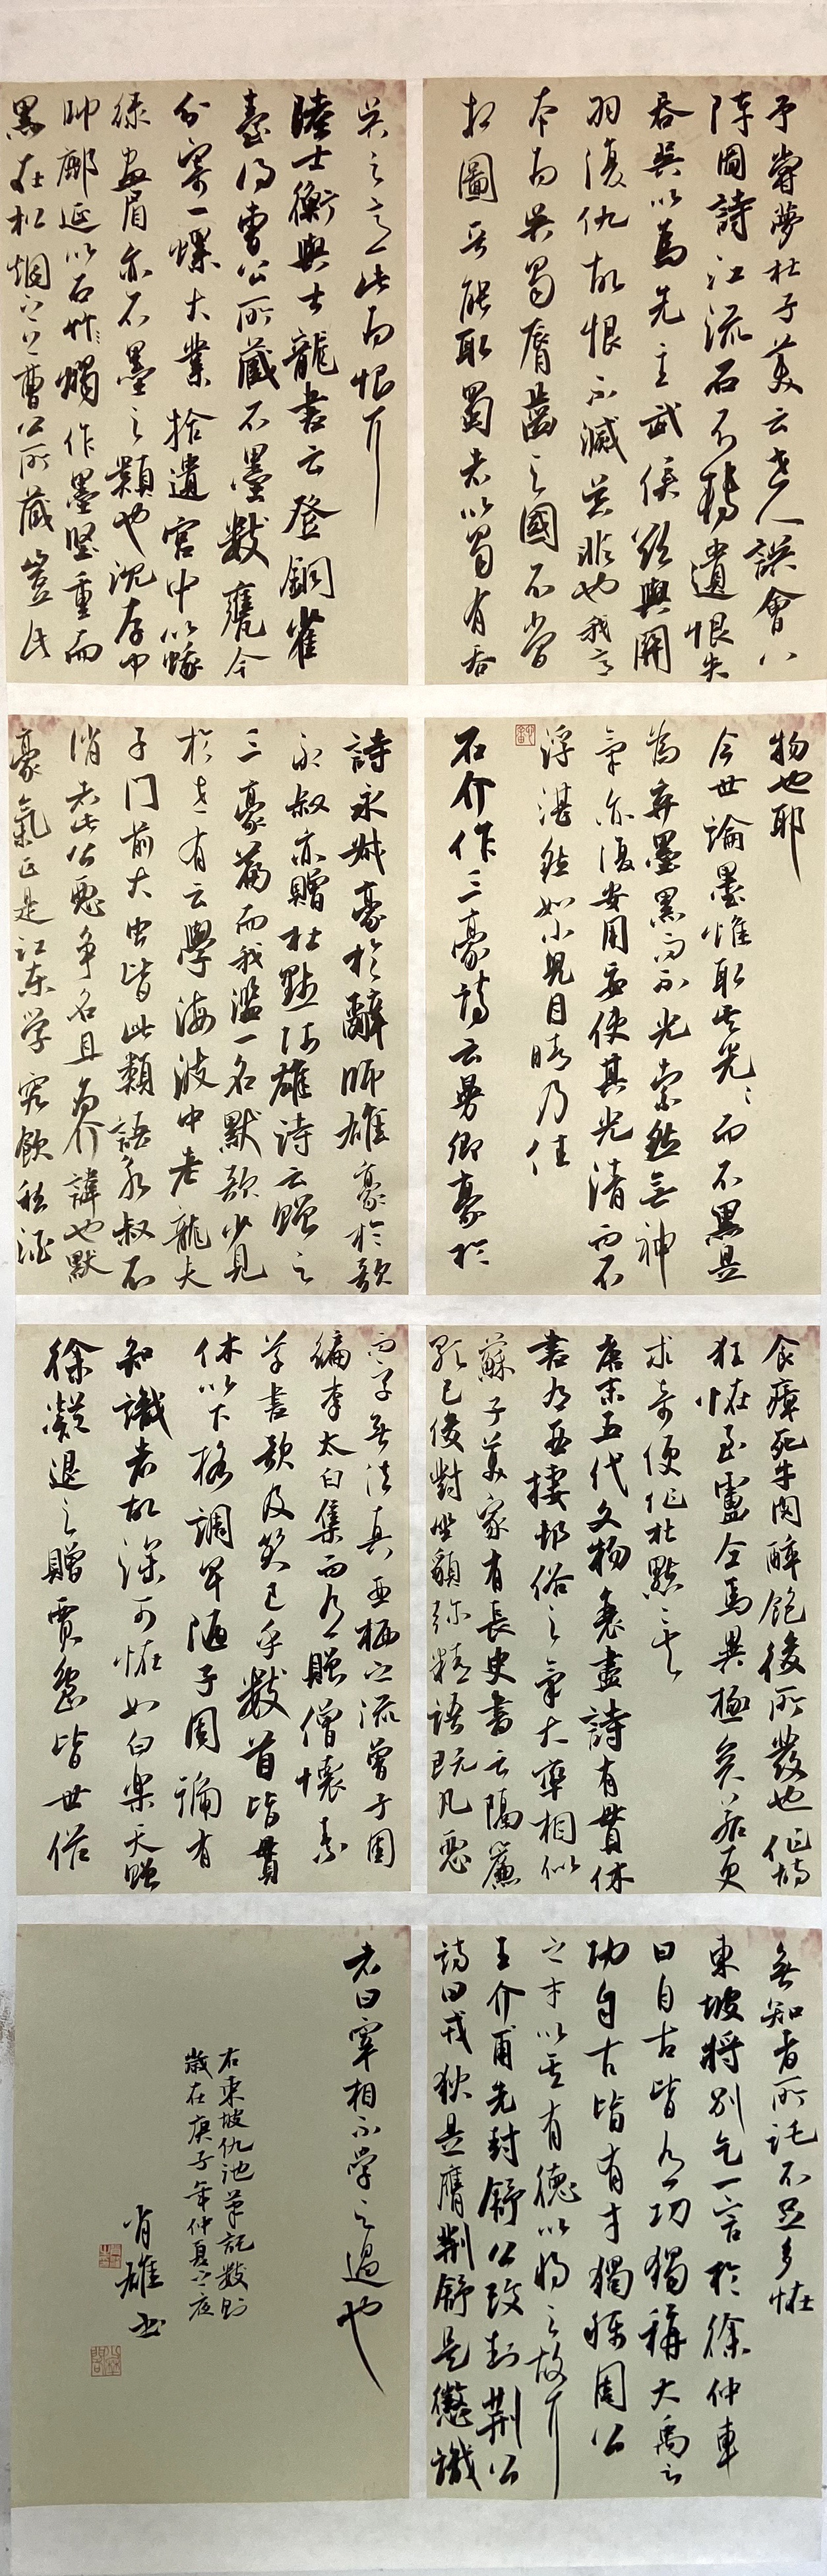 予嘗夢杜子美云世人誤會八
陣圖詩江流石不轉遺恨失
吞吳以爲先主武侯欲與關
羽復仇故恨不滅吳非也我意
本爲吳蜀脣齒之國不當
相圖晉能取蜀者以蜀有吞
吳之意此爲恨耳
陸士衡與士龍書云登銅雀
臺得曹公所藏石墨數甕今
分寄一螺大業拾遺宮中以蛾
綠畫眉亦石墨之類也沈存中
帥鄜延以石炸燭作墨堅重而
黑在松烟之上曹公所藏豈此
物也耶
今世論墨惟取其光光而不黑是
為棄墨黑而不光索然無神
氣亦復安用要使其光清而不
浮湛然如小兒目睛乃佳
石介作三豪詩云曼卿豪於
詩永叔豪於辭師雄豪於歌
永叔亦贈杜默師雄詩云贈之
三豪篇而我濫一名默歌少見
於世有云學海波中老龍夫
子門前大虫皆此類語永叔不
消者此公惡爭名且爲介諱也默
豪氣正是江東學究飲私酒
食瘴死牛肉醉飽後所發也作詩
狂怪至盧仝馬異極矣若更
求奇便作杜默之矣
唐末五代文物衰盡詩有貫休
書有亞棲邨俗之氣大率相似
蘇子美家有長史書云隔簾
歌已俊對坐貌弥精語既凡惡
而字無法真亞栖之流曾子固
編李太白集而有贈僧懷素
草書歌及笑已乎數首皆貫
休以下格調卑陋子固號有
知識者故深可怪如白樂天贈
徐凝退之贈賈島皆世俗
無知者所託不足多怪
東坡將別乞一言於徐仲車
曰自古皆有功獨稱大禹之
功自古皆有才獨稱周公
之才以其有德以將之故耳
王介甫先封舒公改封荆公
詩曰戎狄是膺荆舒是懲識
者曰宰相不學之過也
右東坡仇池筆記數則
歲在庚子年仲夏之夜
肖雄书